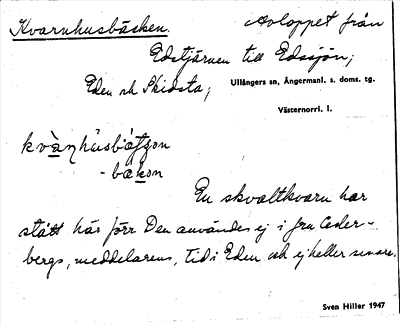 Kvarnhusbäcken. Avloppet från
Edstjärnen till Edssjön;
Eden och Skidsta;
Ullångers sn, Ångermanl. s. doms. tg.
Västernorrl. l.
En skvaltkvarn har
stått här förr Den användes ej i fru Ceder-
bergs, meddelarens, tid i Eden och ej heller senare.
Sven Hiller 1947